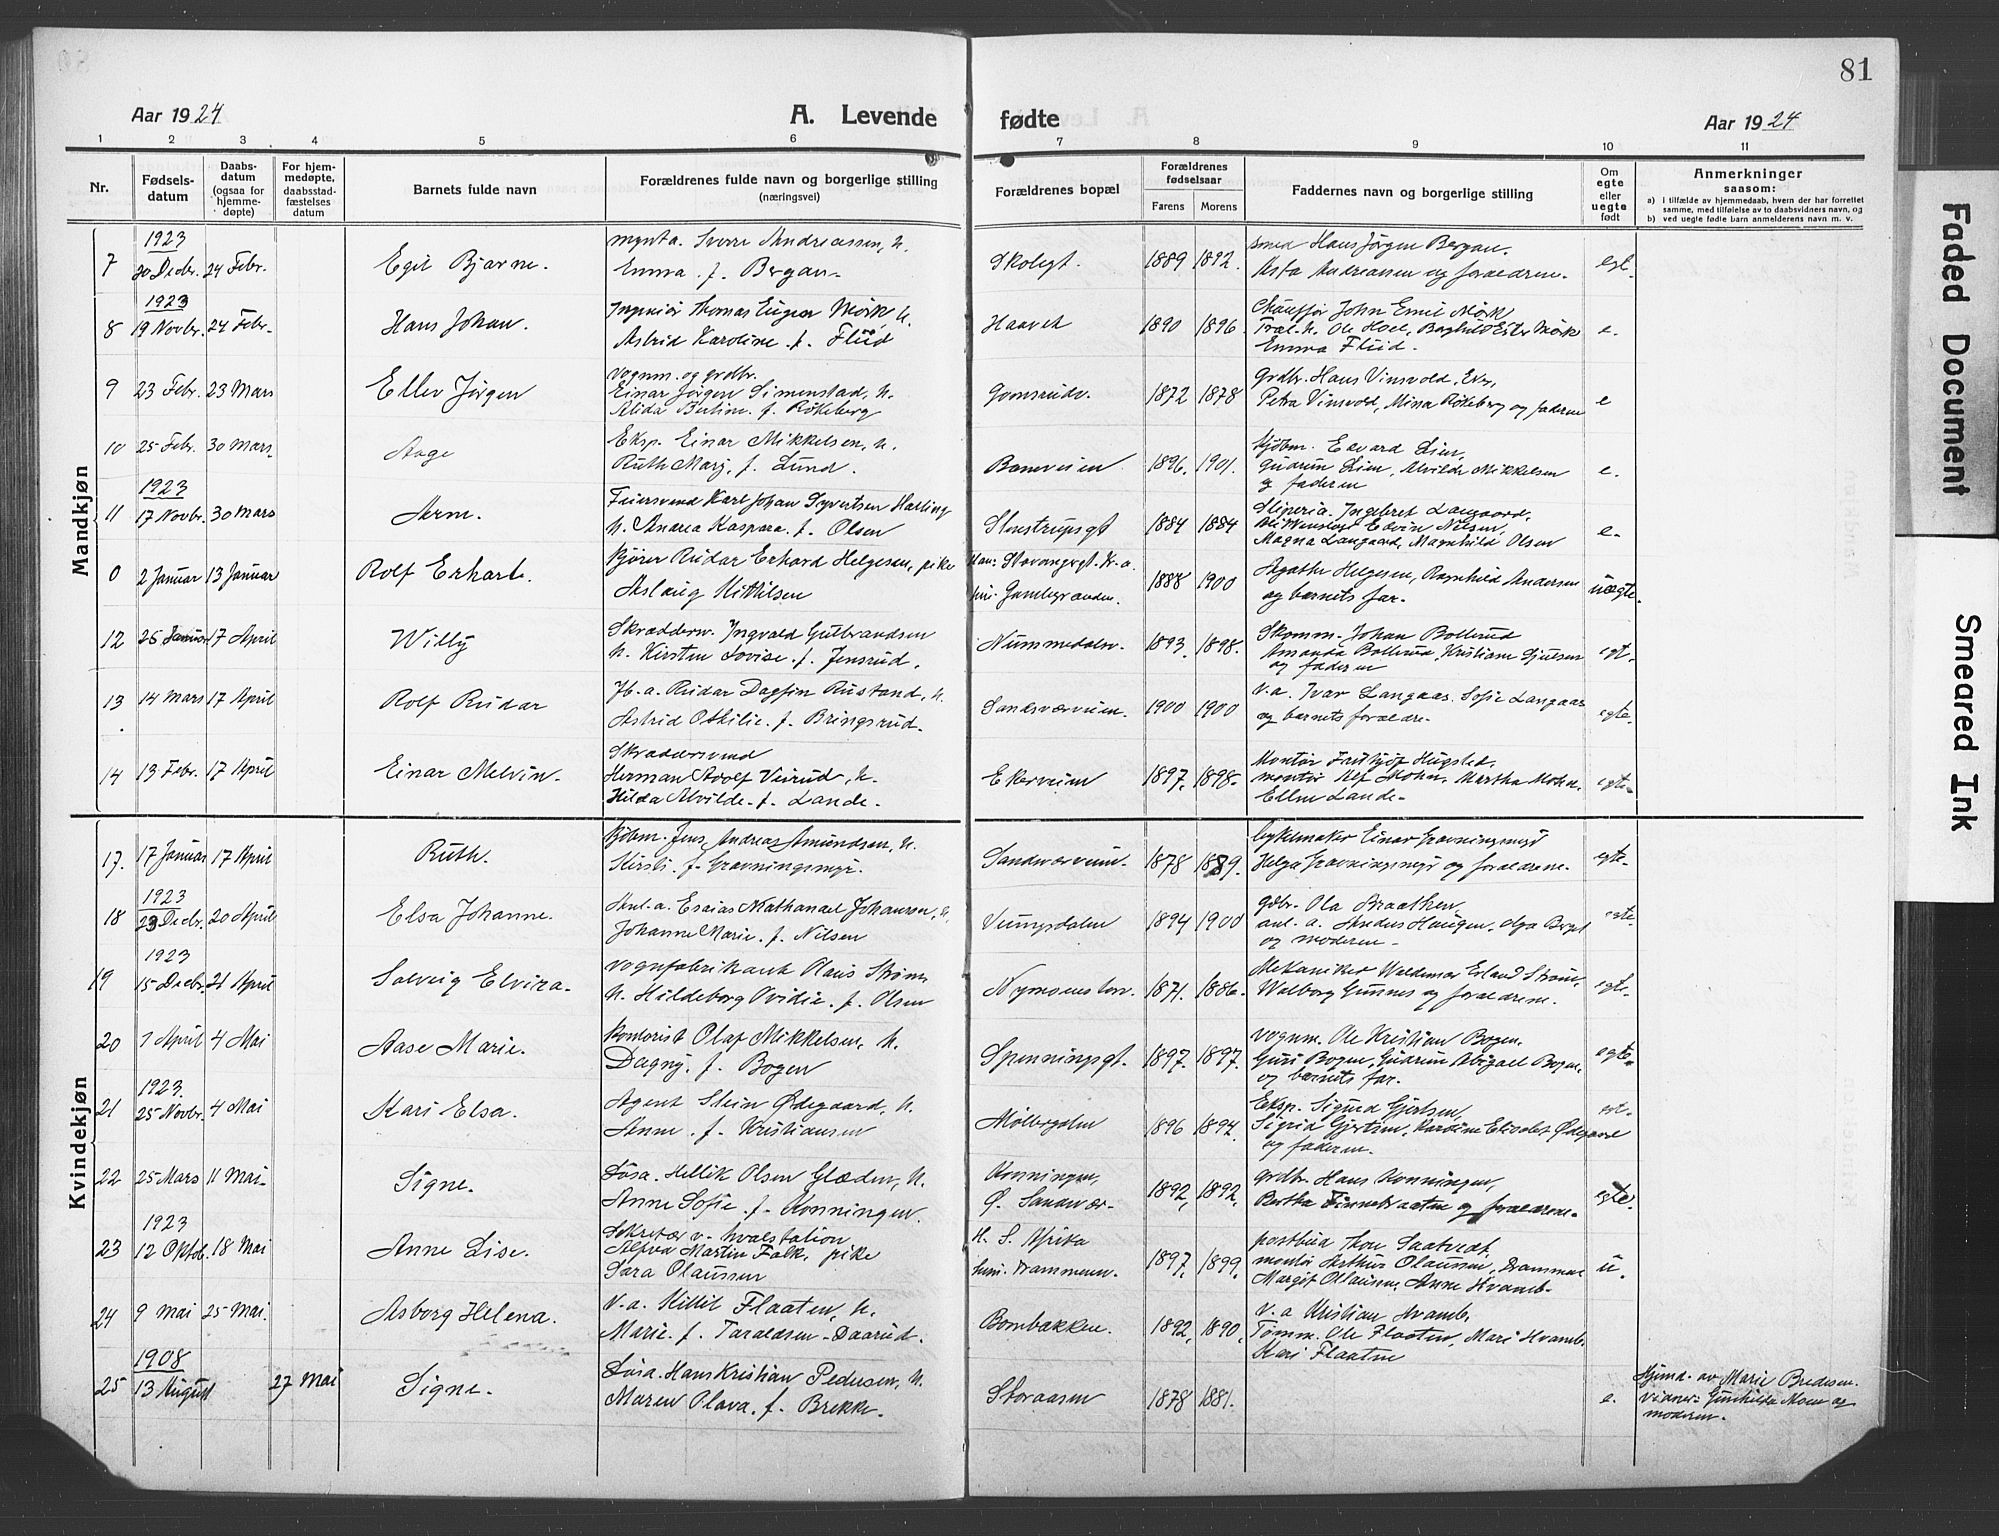 81
Aar 1924
A. Levende
fødte
Aar 1924
1 2 3 4 5 6 7 8 9 10 11
Nr.
Fødsels-
datum
Daabs-
datum
(ogsaa for
hjemme-
døpte)
For hjem-
medøpte,
daabsstad-
fæstelses
datum
Barnets fulde navn
Forældrenes fulde navn og borgerlige stilling
(næringsvei)
Forældrenes bopæl
Forældrenes
fødselsaar
Farens Morens
Faddernes navn og borgerlige stilling
Om
egte
eller
uegte
født
Anmerkninger
saasom:
a) i tilfælde av hjemmedaab, hvem der har forrettet
samme, med tilføielse av to daabsvidners navn, og
b) ved uegte fødte barn anmelderens navn m. v.
Mandkjøn
1923
7 20 Decbr. 24 Febr. Egil Bjarne.
Sverre Andreassen, h.
Emma f. Bergan
Skolegt. 1889 1892.
smed Hans Jörgen Bergan.
Asta Andreassen og foraeldrene. egt.
1923
8 19 Novbr. 24 Febr. Hans Johan.
Ingeniör Thomas Eugen Mörk h.
Astrid Karoline f. Flüd
Haavet 1890 1896
Chauffør John Emil Mörk
Ole Hoel, Borghild Ester Mörk
Emma Flüd. e.
9 23 Febr. 23 Mars Ellev Jörgen
vognm. og grdbr.
Einar Jörgen Simenstad, h.
Alida Bertine f. Rökeberg
Gomsrudv. 1872 1878
Grdbr. Hans Vinsvold, Eker,
Petra Vinsvold, Mina Rökeberg og faderen e
10 25 Febr. 30 Mars. Aage
Eksp. Einar Mikkelsen, h.
Ruth Marj. f. Lund.
Baneveien 1896. 1901.
Kjöbm. Edvard Lien,
Gudrun Lien, Alvilde Mikkelsen
og faderen e.
1923
11 17 Novbr. 30 Mars Arne.
Feiersvend Karl Johan Syvertsen Halling
h. Anarea Kaspara f. Olsen
Stenstrupsgt 1884 1884
Ingebret Langaard,
Edvin Nilsen,
Magna Langaard, Magnhild Olsen e.
0 2 Januar 13 Januar Rolf Erhart.
Kjörer Rudar Erhard Helgesen, pike
Aslaug Kittilsen
han: Stavangergt. Kr.a.
hun: Gamlegranden. 1888 1900
Agathe Helgesen, Ragnhild Andersen
og barnets far. uægte.
12 25 Januar 17 April Willy
Skrædderm. Ingvald Gulbrandsen
h. Kirsten Lovise f. Jensrud.
Nummedalsv. 1893. 1898.
Skomm. Johan Bollerud
Amanda Bollerud, Kristiane
og faderen egt.
13 14 Mars 17 April Rolf Rudar
Jb. a. Rudar Dagfin Rustand, h.
Astrid Othilie f. Bringsrud.
Sandsværveien. 1900 1900
V.a. Ivar Langaas. Sofie Langaas
og barnets foraeldre. egte.
14 13 Febr. 17 April Einar Melvin.
Skræddersvend
Herman Adolf Veirud, h.
Hilda Alvilde f. Lande.
Ekerveien 1897. 1898.
Montör Frithjof Hugsted.
montör Alf Mohn, Martha Mohn.
Ellen Lande. egte.
Kvindekjøn
17. 17 Januar 17 April Ruth.
Kjöbm. Jens Andreas Amundsen, h.
Kirsti f. Gravningsmyr.
Sandsværveien. 1878 1889.
Cykelmaker Einar Gravningsmyr
Helga Gravningsmyr og foraeldrene. egte.
1923
18 23 Decbr. 20 April Elsa Johanne.
Anl. a. Esaias Nathanael Johansen, h.
Johanne Marie f. Nilsen
Veungsdalen 1894 1900
gdbr. Ola Braathen
anl. a. Anders Haugen. Olga
og moderen. egte.
1923
19 15 Decbr. 21 April Solveig Elvira.
vognfabrikant Olaus Ström
h. Hildeborg Ovidie f. Olsen
Nymoenstorv. 1871. 1886.
Mekaniker Waldemar Erland Ström,
Walborg Gunnes og foraeldrene. egte.
20 7 April 4 Mai Aase Marie.
Kontorist Olaf Mikkelsen, h.
Dagny f. Bogen
Spenningsgt. 1897. 1897.
vognm. Ole Kristian Bogen.
Guri Bogen, Gudrun Abigael Bogen.
og barnets far. egte.
1923.
21 25 Novbr. 4 Mai Kari Elsa.
Agent Stein Ødegaard, h.
Anne f. Kristiansen
Mölbergdalen 1896 1894.
Eksp. Sigurd Gjertsen,
Sigrid Gjertsen, Karoline Elisabet Ødegaard
og faderen. egt.
22 25 Mars 11 Mai. Signe.
Hellik Olsen Glæden, h.
Anne Sofie f. Konningen.
Konningen,
Ø. Sandsvær. 1892, 1892.
grdbr. Hans Konningen,
Bertha Finnebraaten og foraeldrene. egte.
1923
23 12 Oktob. 18 Mai Anne Lise.
Sekretær v. hvalstation
Alfred Martin Falk, pike
Sara Olaussen
H. S. Afrika
hun. Drammen. 1897, 1899.
postbud Thor Saatvedt,
montör Arthur Olaussen, Drammen
Margit Ollausen, Anne Hvamb. u.
24 9 Mai 25 Mai. Asborg Helena.
V.a. Kittil Flaaten, h.
Marie f. Taraldsen-Daarud.
Bombakken. 1892, 1890,
V.a Kristian Hvamb.
Tömm. Ole Flaaten, Mari Hvamb.
Kari Flaaten
1908
25 13 August 27 Mai Signe.
Hans Kristian Pedersen, h.
Maren Olava f. Brekke.
Storaasen 1878 1881. e.
Hjemd. av Marie Bredesen.
vidner: Gunhilda Moen og
moderen.
Faded Document
Smeared Ink